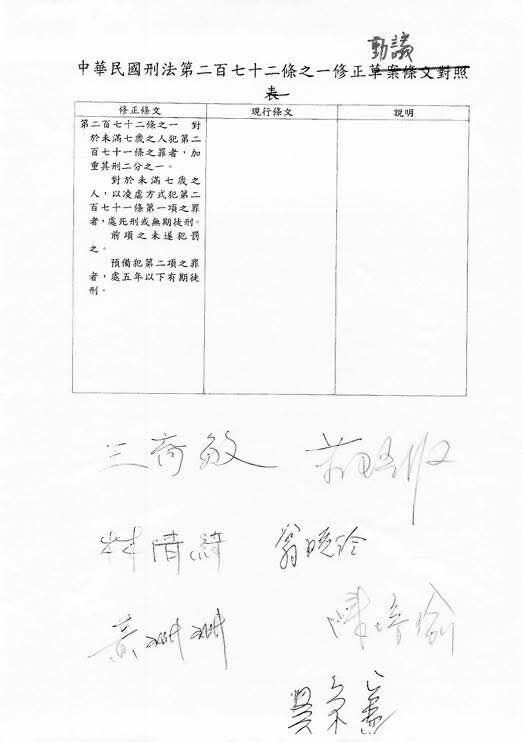 動議
中華民國刑法第二百七十二條之一修正草案條文對照
表
修正條文
現行條文
說明
第二百七十二條之一　對
於未滿七歲之人犯第二
百七十一條之罪者，加
重其刑二分之一。
對於未滿七歲之
人，以凌虐方式犯第二
百七十一條第一項之罪
者，處死刑或無期徒刑。
前項之未遂犯罰
之。
預備犯第二項之罪
者，處五年以下有期徒
刑。
林倩綺
翁曉玲
黃珊珊
陳培瑜
吳宗憲